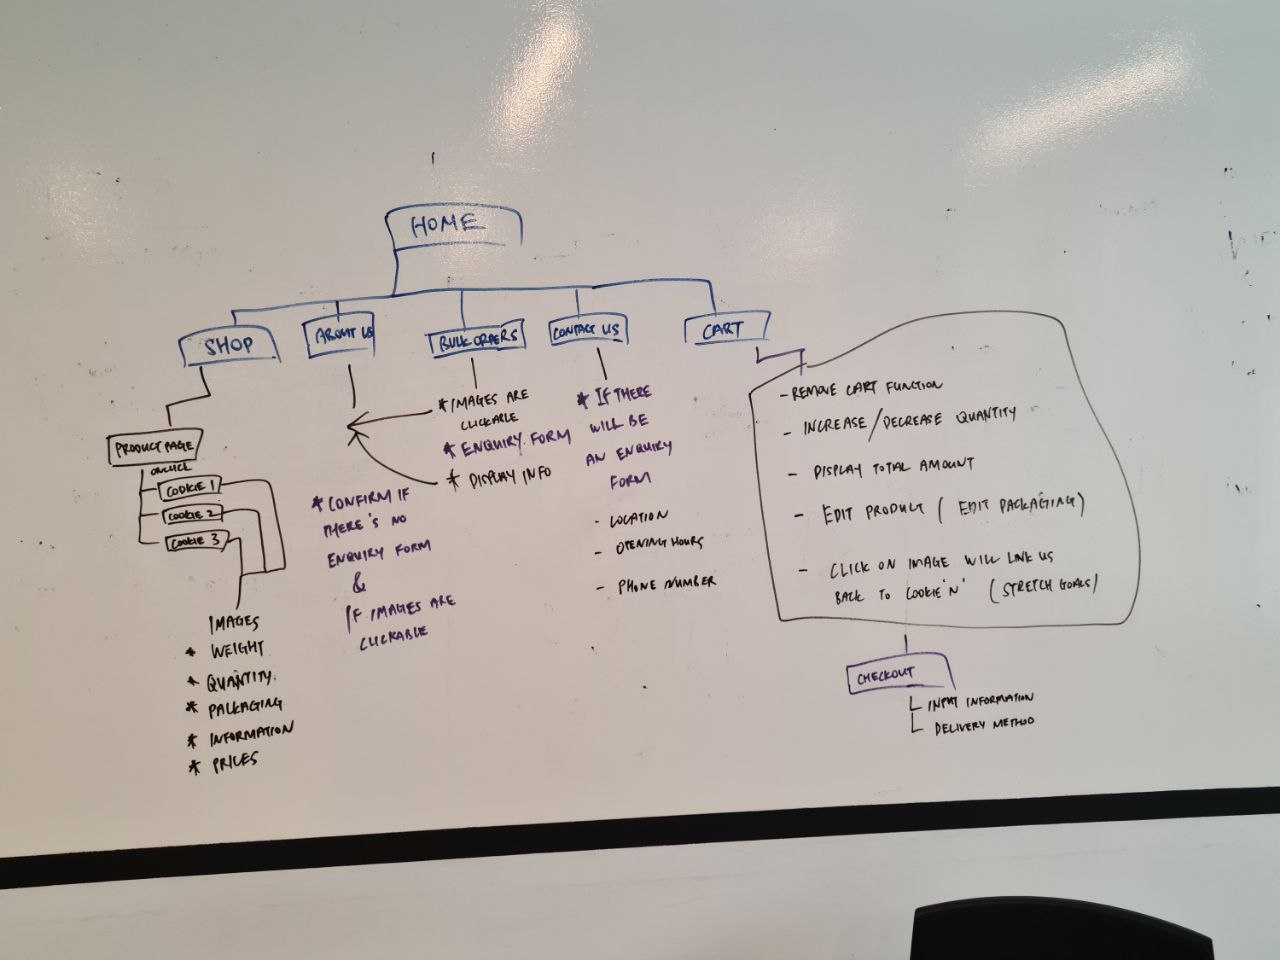 HOME
SHOP
ABOUT US
BULK ORDERS
CONTACT US
CART
PRODUCT PAGE
ONCLICK
COOKIE 1
COOKIE 2
COOKIE 3
IMAGES
* WEIGHT
* QUANTITY.
* PACKAGING
* INFORMATION
* PRICES
* CONFIRM IF
THERE'S NO
ENQUIRY FORM
&
IF IMAGES ARE
CLICKABLE
* IMAGES ARE
CLICKABLE
* ENQUIRY FORM
* DISPLAY INFO
* IF THERE
WILL BE
AN ENQUIRY
FORM
- LOCATION
- OPENING HOURS
- PHONE NUMBER
- REMOVE CART FUNCTION
- INCREASE/DECREASE QUANTITY
- DISPLAY TOTAL AMOUNT
- EDIT PRODUCT (EDIT PACKAGING)
- CLICK ON IMAGE WILL LINK US
BACK TO COOKIE 'N' (STRETCH GOALS)
CHECKOUT
INPUT INFORMATION
DELIVERY METHOD